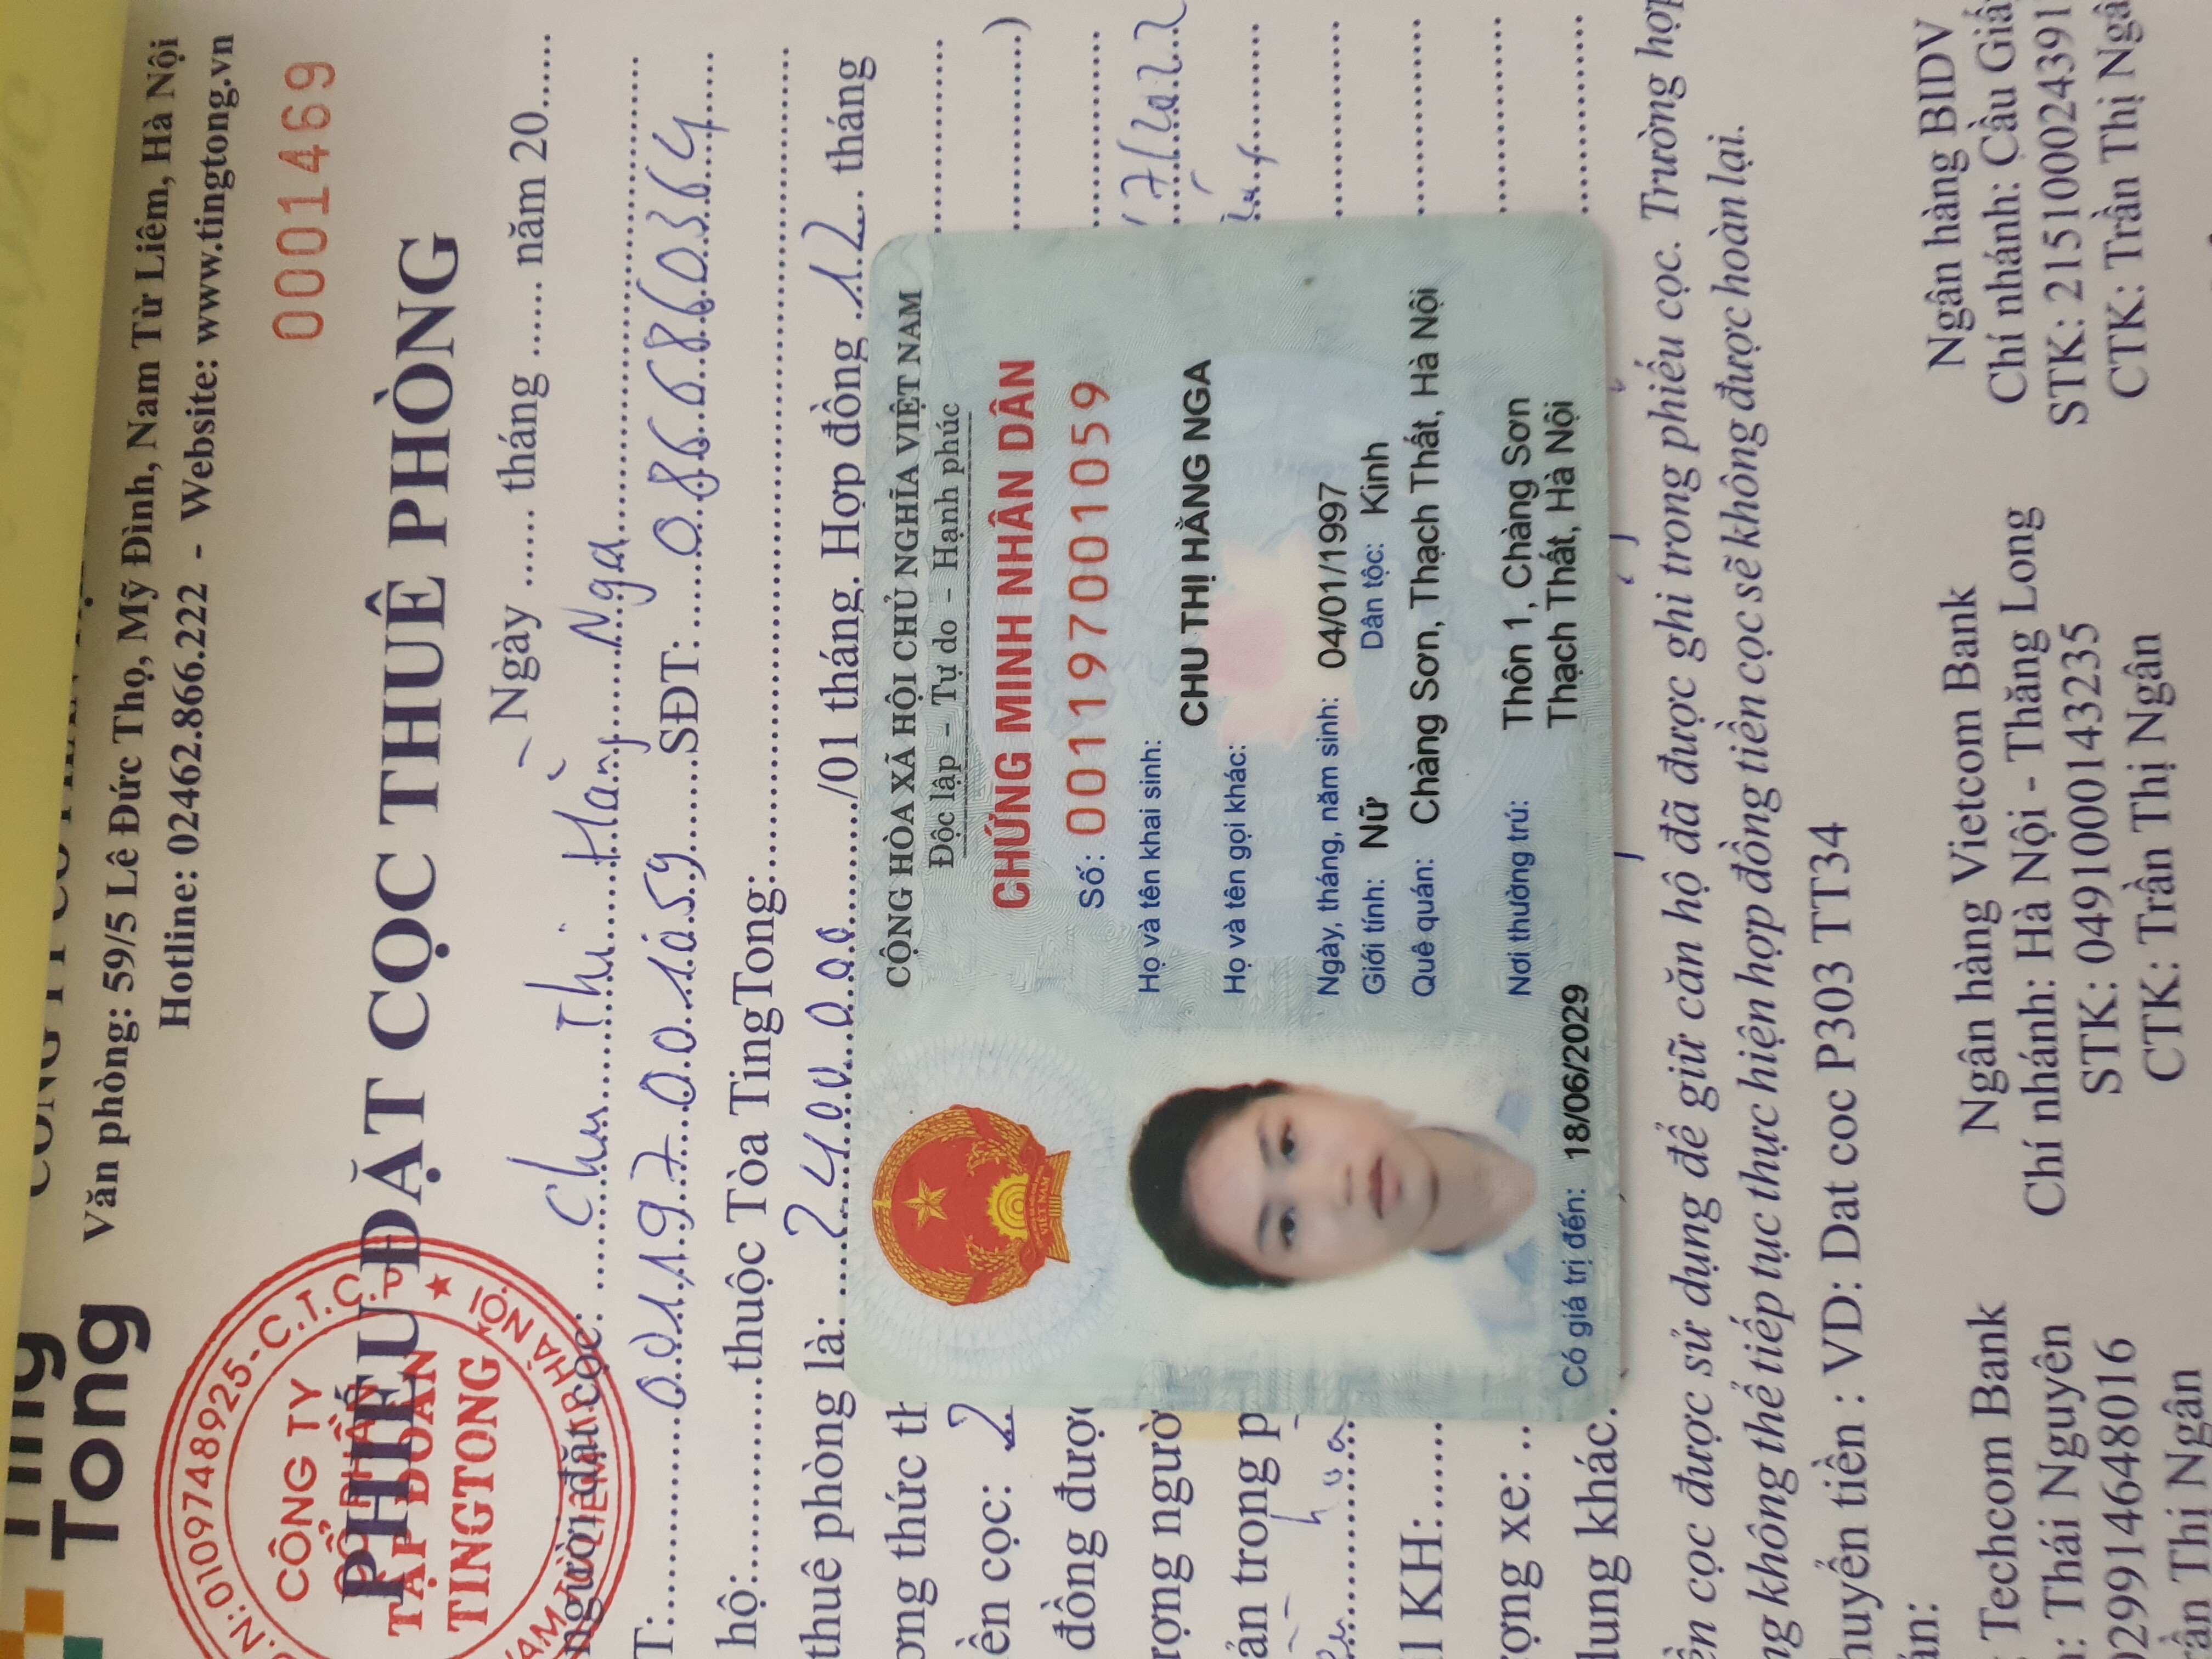 Ting
Tong
Văn phòng: 59/5 Lê Đức Thọ, Mỹ Đình, Nam Từ Liêm, Hà Nội
Hotline: 02462.866.222 - Website: www.tingtong.vn
0001469
PHIẾU ĐẶT CỌC THUÊ PHÒNG
N:0109748925-C.T.C.P
CÔNG TY
CỔ PHẦN
TẬP ĐOÀN
TINGTONG
NAM TỪ LIÊM-TP.HÀ NỘI
Ngày ...... tháng ...... năm 20......
người đặt cọc: Chu Thị Hằng Nga
T: 001197001059 SĐT: 0866860364
hộ: thuộc Tòa TingTong:
thuê phòng là: 2400.000/01 tháng. Hợp đồng 12 tháng
ơng thức
ền cọc: 2
đồng được
ượng ngườ
ản trong p
l KH:
ợng xe:
dung khác
CỘNG HÒA XÃ HỘI CHỦ NGHĨA VIỆT NAM
Độc lập - Tự do - Hạnh phúc
CHỨNG MINH NHÂN DÂN
Số: 001197001059
Họ và tên khai sinh:
CHU THỊ HẰNG NGA
Họ và tên gọi khác:
Ngày, tháng, năm sinh: 04/01/1997
Giới tính: Nữ Dân tộc: Kinh
Quê quán: Chàng Sơn, Thạch Thất, Hà Nội
Nơi thường trú: Thôn 1, Chàng Sơn
Thạch Thất, Hà Nội
Có giá trị đến: 18/06/2029
ền cọc được sử dụng để giữ căn hộ đã được ghi trong phiếu cọc. Trường hợp
ng không thể tiếp tục thực hiện hợp đồng tiền cọc sẽ không được hoàn lại.
huyển tiền : VD: Dat coc P303 TT34
Techcom Bank
Thái Nguyên
02991464801​6
Trần Thị Ngân
Ngân hàng Vietcom Bank
Chí nhánh: Hà Nội - Thăng Long
STK: 0491000143235
CTK: Trần Thị Ngân
Ngân hàng BIDV
Chí nhánh: Cầu Giấy
STK: 2151000243917
CTK: Trần Thị Ngâ